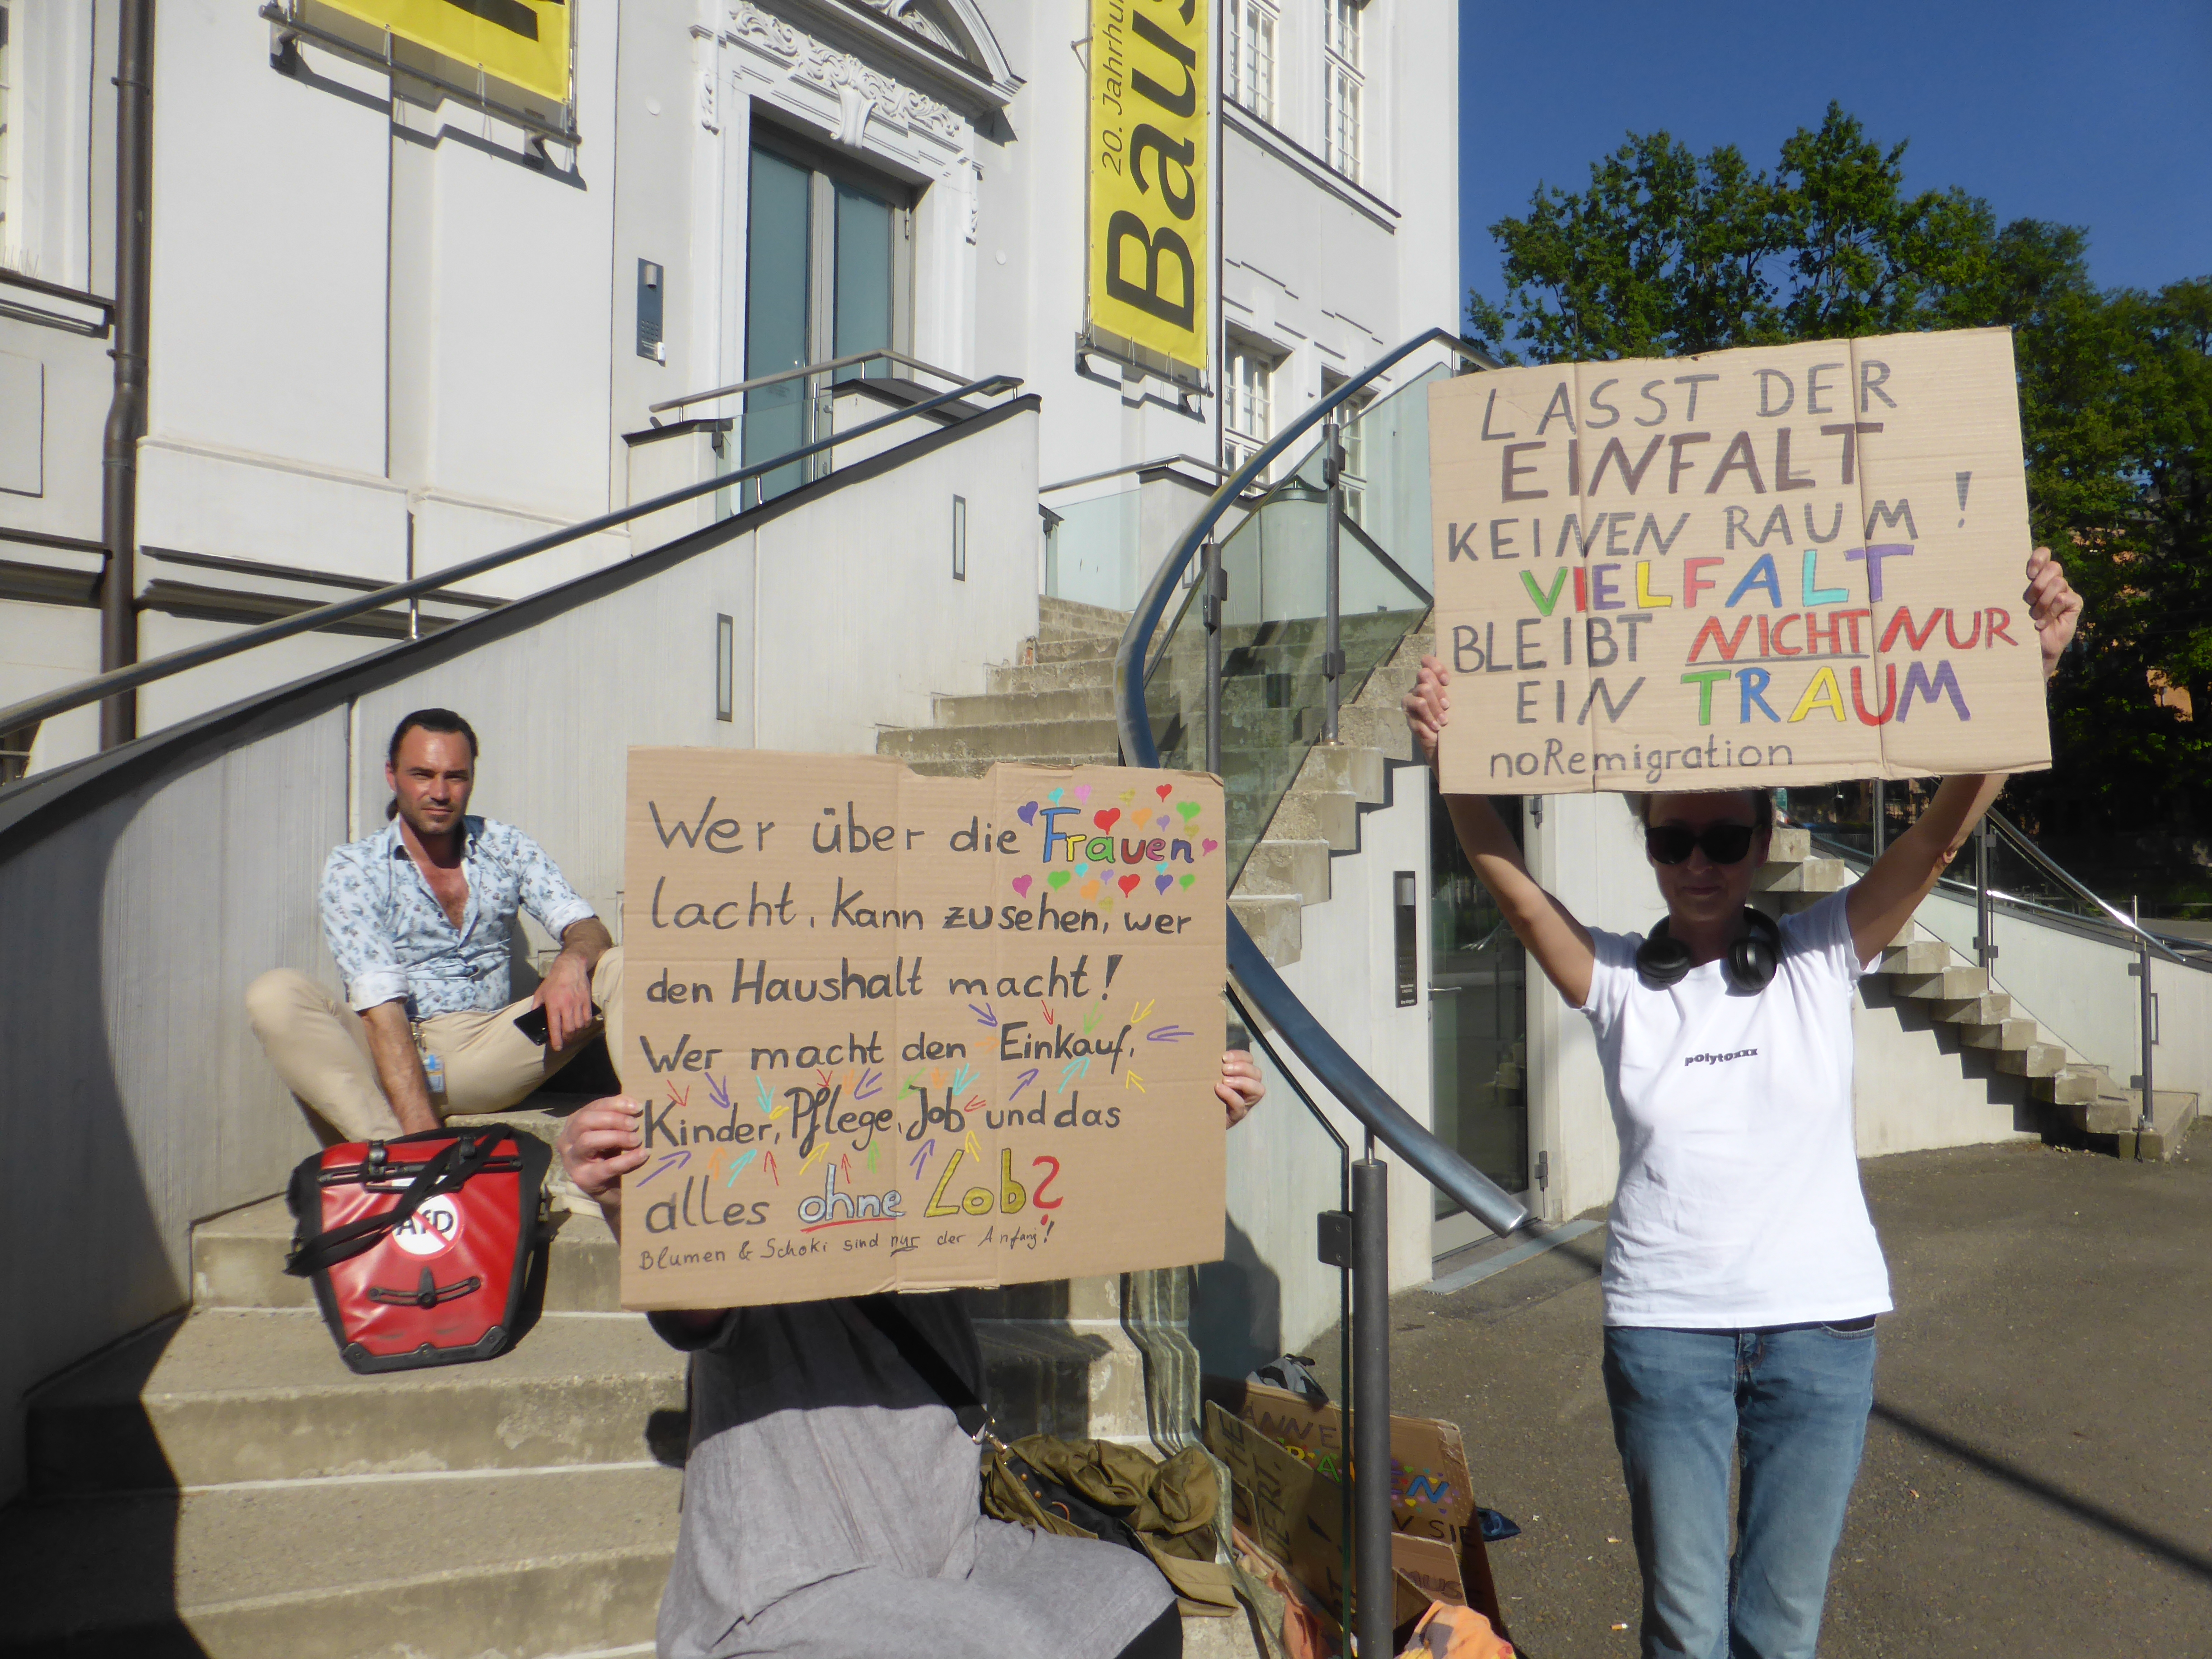 20. Jahrhu
Baus
LASST DER
EINFALT
KEINEN RAUM!
VIELFALT
BLEIBT NICHT NUR
EIN TRAUM
noRemigration
Wer über die Frauen
lacht, kann zusehen, wer
den Haushalt macht!
Wer macht den Einkauf,
Kinder, Pflege, Job und das
alles ohne Lob?
Blumen & Schoki sind nur der Anfang!
polytoxxx
AfD
ANNE
SIE